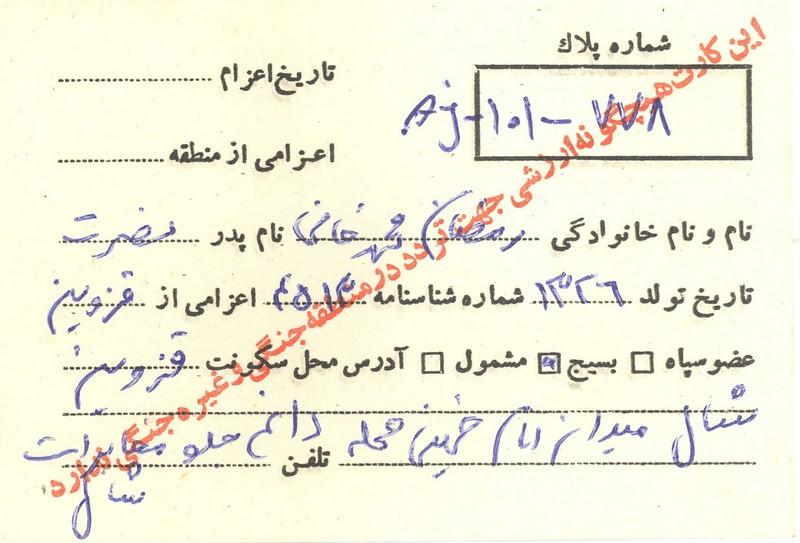 شماره پلاك
تاریخ اعزام
AJ-101-۷۷۸
اعزامی از منطقه
نام و نام خانوادگی رمضان محمدخانی نام پدر نصرت
تاریخ تولد ۱۳۲۶ شماره شناسنامه اعزامی از قزوین
عضو سپاه بسیج مشمول آدرس محل سکونت قزوین
شال میدان امام خمینی محله جلو مخابرات
تلفن
شال
این کارت هیچگونه ارزشی جهت تردد در منطقه جنگی و غیره جنگی ندارد.